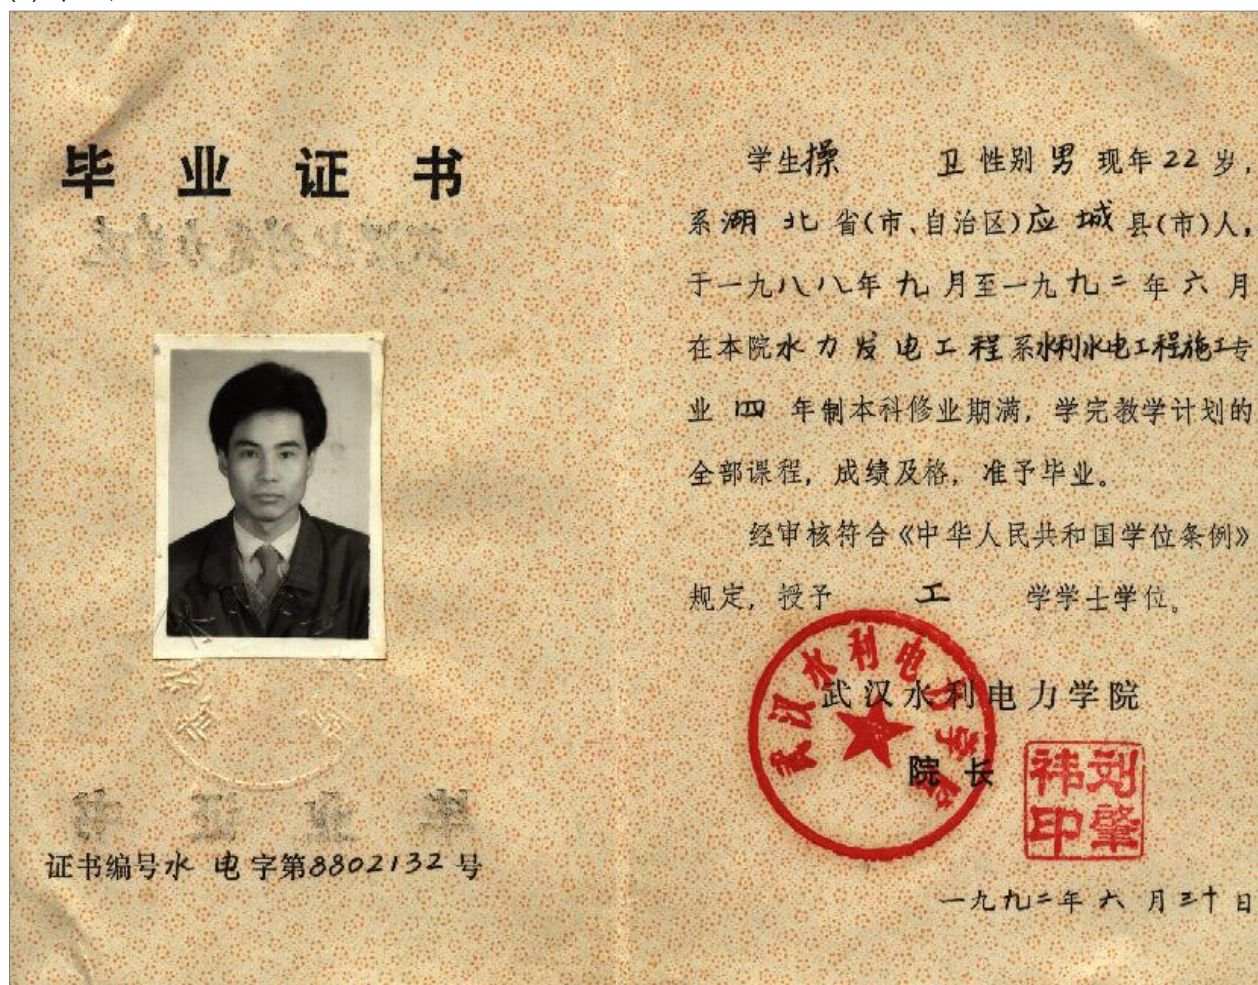 毕业证书
证书编号水电字第8802132号
学生操 卫 性别 男 现年22岁,
系湖北省(市、自治区)应城县(市)人,
于一九八八年九月至一九九二年六月
在本院水力发电工程系水利水电工程施工专
业四年制本科修业期满,学完教学计划的
全部课程,成绩及格,准予毕业。
经审核符合《中华人民共和国学位条例》
规定,授予 工 学学士学位。
武汉水利电力学院
院长
武汉水利电力学院
刘肇祎印
一九九二年六月三十日